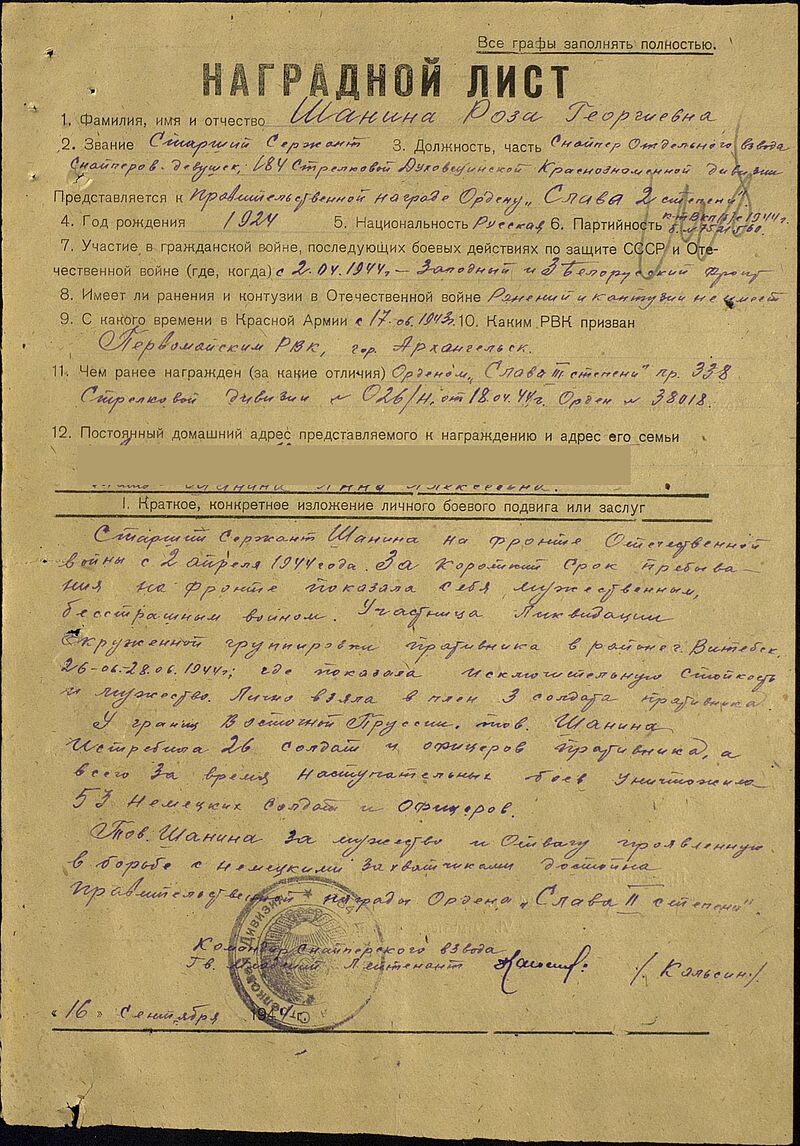 Все графы заполнять полностью.
НАГРАДНОЙ ЛИСТ
1. Фамилия, имя и отчество Шанина Роза Георгиевна
2. Звание Старший Сержант 3. Должность, часть Снайпер Отдельного взвода
Снайперов-девушек, 184 Стрелковой Духовщинской Краснознаменной дивизии
Представляется к Правительственной награде Ордену „Слава 2 степени"
4. Год рождения 1924 5. Национальность Русская 6. Партийность к-т ВКП(б) с 1944г.
7. Участие в гражданской войне, последующих боевых действиях по защите СССР и Оте-
чественной войне (где, когда) с 2.04.1944г. – Западный и 3 Белорусский фронт
8. Имеет ли ранения и контузии в Отечественной войне Ранений и контузии не имеет
9. С какого времени в Красной Армии с 17.06.1943г. 10. Каким РВК призван
Первомайским РВК, гор. Архангельск.
11. Чем ранее награжден (за какие отличия) Орденом „Слава III степени" пр. 338
Стрелковой дивизии № 026/н. от 18.04.44г. Орден № 38018.
12. Постоянный домашний адрес представляемого к награждению и адрес его семьи
Шанина Анна Алексеевна.
I. Краткое, конкретное изложение личного боевого подвига или заслуг
Старший Сержант Шанина на фронте Отечественной
войны с 2 апреля 1944 года. За короткий срок пребыва-
ния на фронте показала себя мужественным,
бесстрашным воином. Участница Ликвидации
окруженной группировки противника в районе г. Витебск,
26-06-28.06.1944г; где показала исключительную стойкость
и мужество. Лично взяла в плен 3 солдата противника.
У границ Восточной Пруссии. тов. Шанина
истребила 26 солдат и офицеров противника, а
всего за время наступательных боев уничтожила
53 немецких солдат и офицеров.
Тов. Шанина за мужество и отвагу проявленную
в борьбе с немецкими захватчиками достойна
Правительственной награды Ордена „Слава II степени".
Командир Снайперского взвода
Гв. Младший Лейтенант /. Кальсин./
«16» Сентября 1944г.